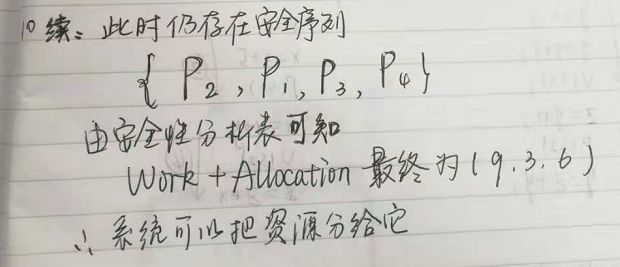 10 续：此时仍存在安全序列
{ P2 , P1, P3, P4 }
由安全性分析表可知
Work + Allocation 最终为 (9.3.6)
∴ 系统可以把资源分给它